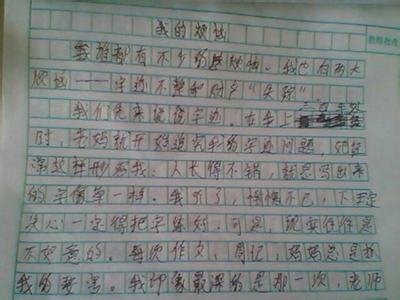 我的烦恼
谁都有不少的烦恼。我也有两大
烦恼——字迹不整和财产“失踪”
我们先来说说字迹。在上
时，老妈就开始追究我的字迹问题，她经
常这样形容我：人长得不错，就是写出来
的字像草一样。我听了，惭愧不已，下定
决心一定得把字练好。可是，现实往往是
不如意的。每次作文，周记，妈妈总是
我的。我印象最深的是那一次，老师